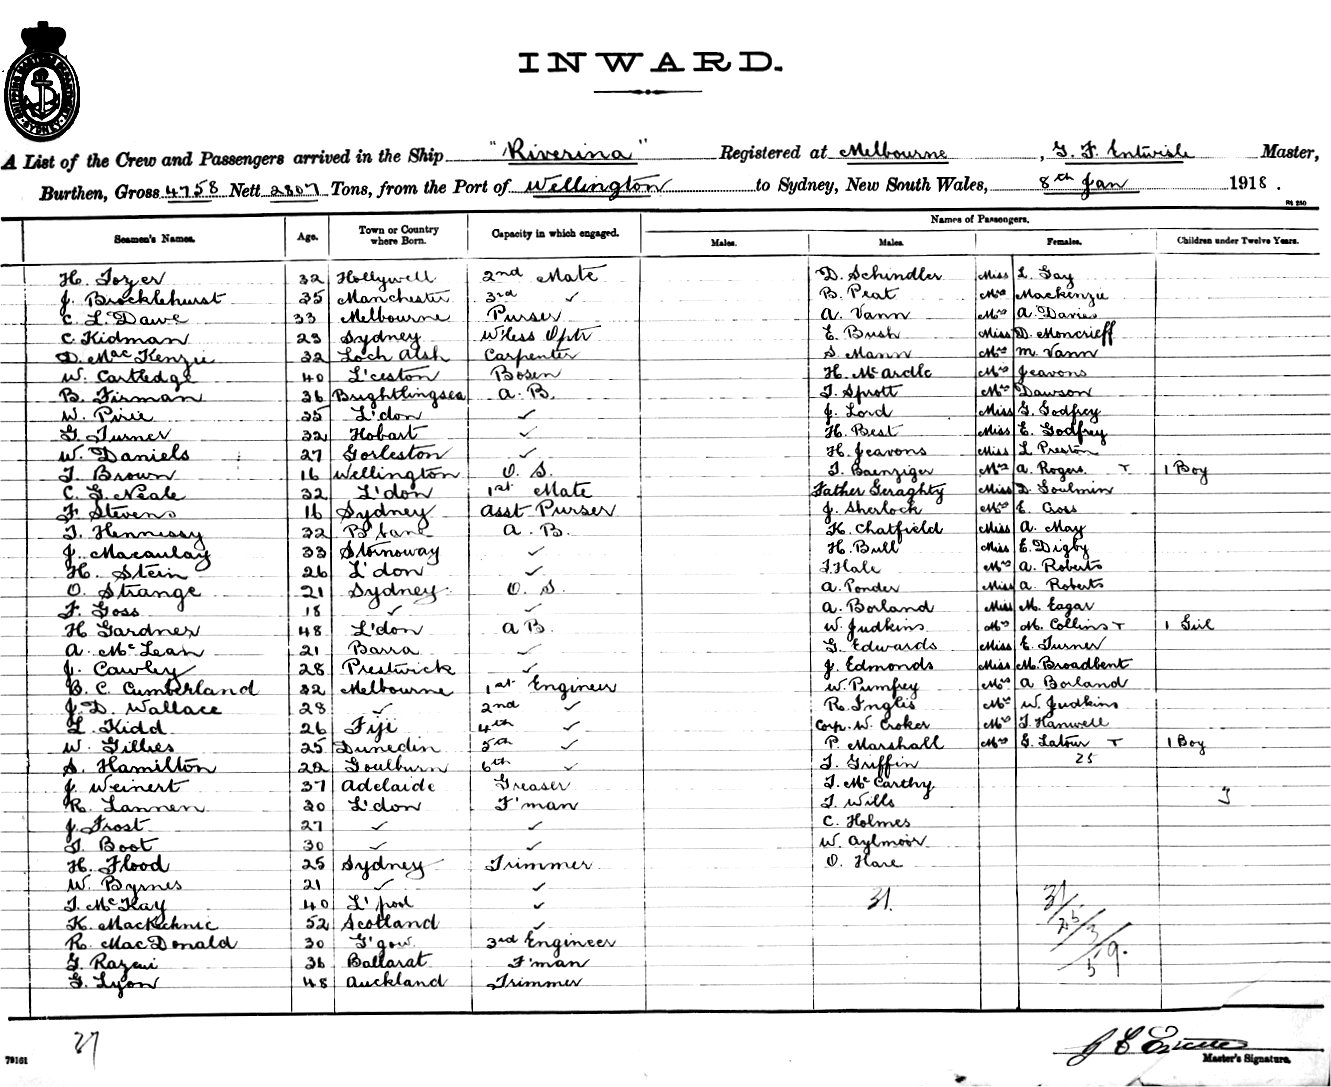 SHIPPING MASTER'S DEPARTMENT SYDNEY
INWARD.
A List of the Crew and Passengers arrived in the Ship "Riverina" Registered at Melbourne, G. F. Entwisle Master,
Burthen, Gross 4758 Nett 2807 Tons, from the Port of Wellington to Sydney, New South Wales, 8th Jan 1918.
Names of Passengers.
Seamen's Names. Age. Town or Country where Born. Capacity in which engaged. Males. Males. Females. Children under Twelve Years.
H. Tozer 32 Hollywell 2nd Mate D. Schindler Miss L. Gay
J. Brocklehurst 35 Manchester 3rd ✓ B. Peat Mrs Mackenzie
C. L. Dawe 33 Melbourne Purser A. Vann Mrs A. Davies
C. Kidman 23 Sydney W'less Optr E. Bush Miss D. Moncrieff
D. MacKenzie 32 Loch Alsh Carpenter S. Mann Mrs M. Vann
W. Cartledge 40 L'ceston Bosen H. McArdle Mrs Jeavons
B. Firman 36 Brightlingsea A. B. T. Sprott Mrs Dawson
W. Pirie 35 L'don ✓ J. Lord Miss G. Godfrey
G. Turner 32 Hobart ✓ H. Best Miss E. Godfrey
W. Daniels 27 Gorleston ✓ H. Jeavons Miss L. Preston
T. Brown 16 Wellington O. S. T. Baenziger Mrs A. Rogers T 1 Boy
C. G. Neale 32 L'don 1st Mate Father Geraghty Miss D. Goulmin
F. Stevens 16 Sydney Asst Purser J. Sherlock Mrs E. Goss
T. Hennessy 32 B'bane A. B. K. Chatfield Miss A. May
J. Macaulay 33 Stornoway ✓ H. Bull Miss E. Digby
H. Stein 26 L'don ✓ T. Hale Mrs A. Roberts
O. Strange 21 Sydney O. S. A. Ponder Miss A. Roberts
F. Goss 18 ✓ ✓ A. Borland Miss M. Eagar
H. Gardner 48 L'don A B. W. Judkins Mrs M. Collins T 1 Girl
A. McLean 21 Barra ✓ G. Edwards Miss E. Turner
J. Cawley 28 Prestwick ✓ J. Edmonds Miss M. Broadbent
B. C. Cumberland 32 Melbourne 1st Engineer W. Pumfrey Mrs A Borland
J. D. Wallace 28 ✓ 2nd ✓ R. Inglis Mrs W. Judkins
L. Kidd 26 Fiji 4th ✓ Corp. W. Croker Mrs T. Hanwell
W. Gillies 25 Dunedin 5th ✓ P. Marshall Mrs G. Latour T 1 Boy
S. Hamilton 22 Goulburn 6th ✓ T. Griffin 25
J. Weinert 37 Adelaide Greaser T. McCarthy
R. Lannen 30 L'don F'man T. Wills 3
J. Frost 27 ✓ ✓ C. Holmes
T. Boot 30 ✓ ✓ W. Aylmoor
H. Flood 25 Sydney Trimmer O. Hare
W. Byrnes 21 ✓ ✓
T. McKay 40 L'pool ✓ 31. 31.
K. MacKechnie 52 Scotland ✓ 25
R. MacDonald 30 G'gow 3rd Engineer 3
G. Razevi 36 Ballarat F'man 59.
G. Lyon 48 Auckland Trimmer
37
79161
Master's Signature.